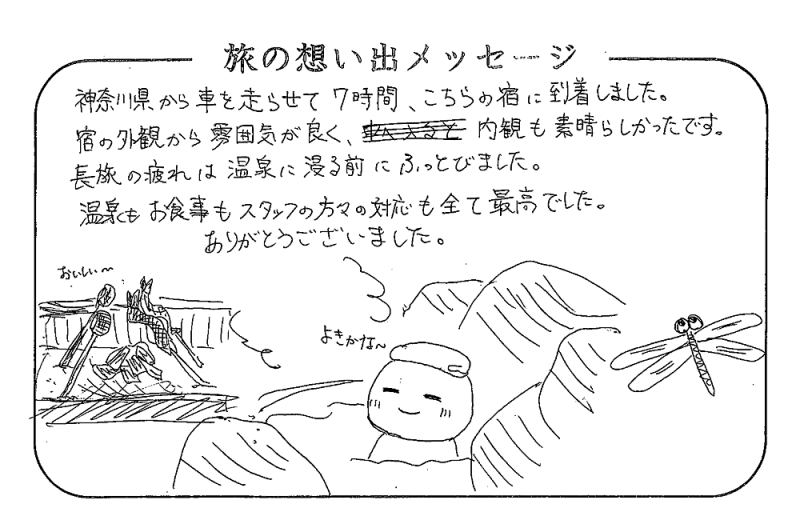 旅の想い出メッセージ
神奈川県から車を走らせて7時間、こちらの宿に到着しました。
宿の外観から雰囲気が良く、内観も素晴らしかったです。
長旅の疲れは温泉に浸る前にふっとびました。
温泉もお食事もスタッフの方々の対応も全て最高でした。
ありがとうございました。
おいしい〜
よきかな〜